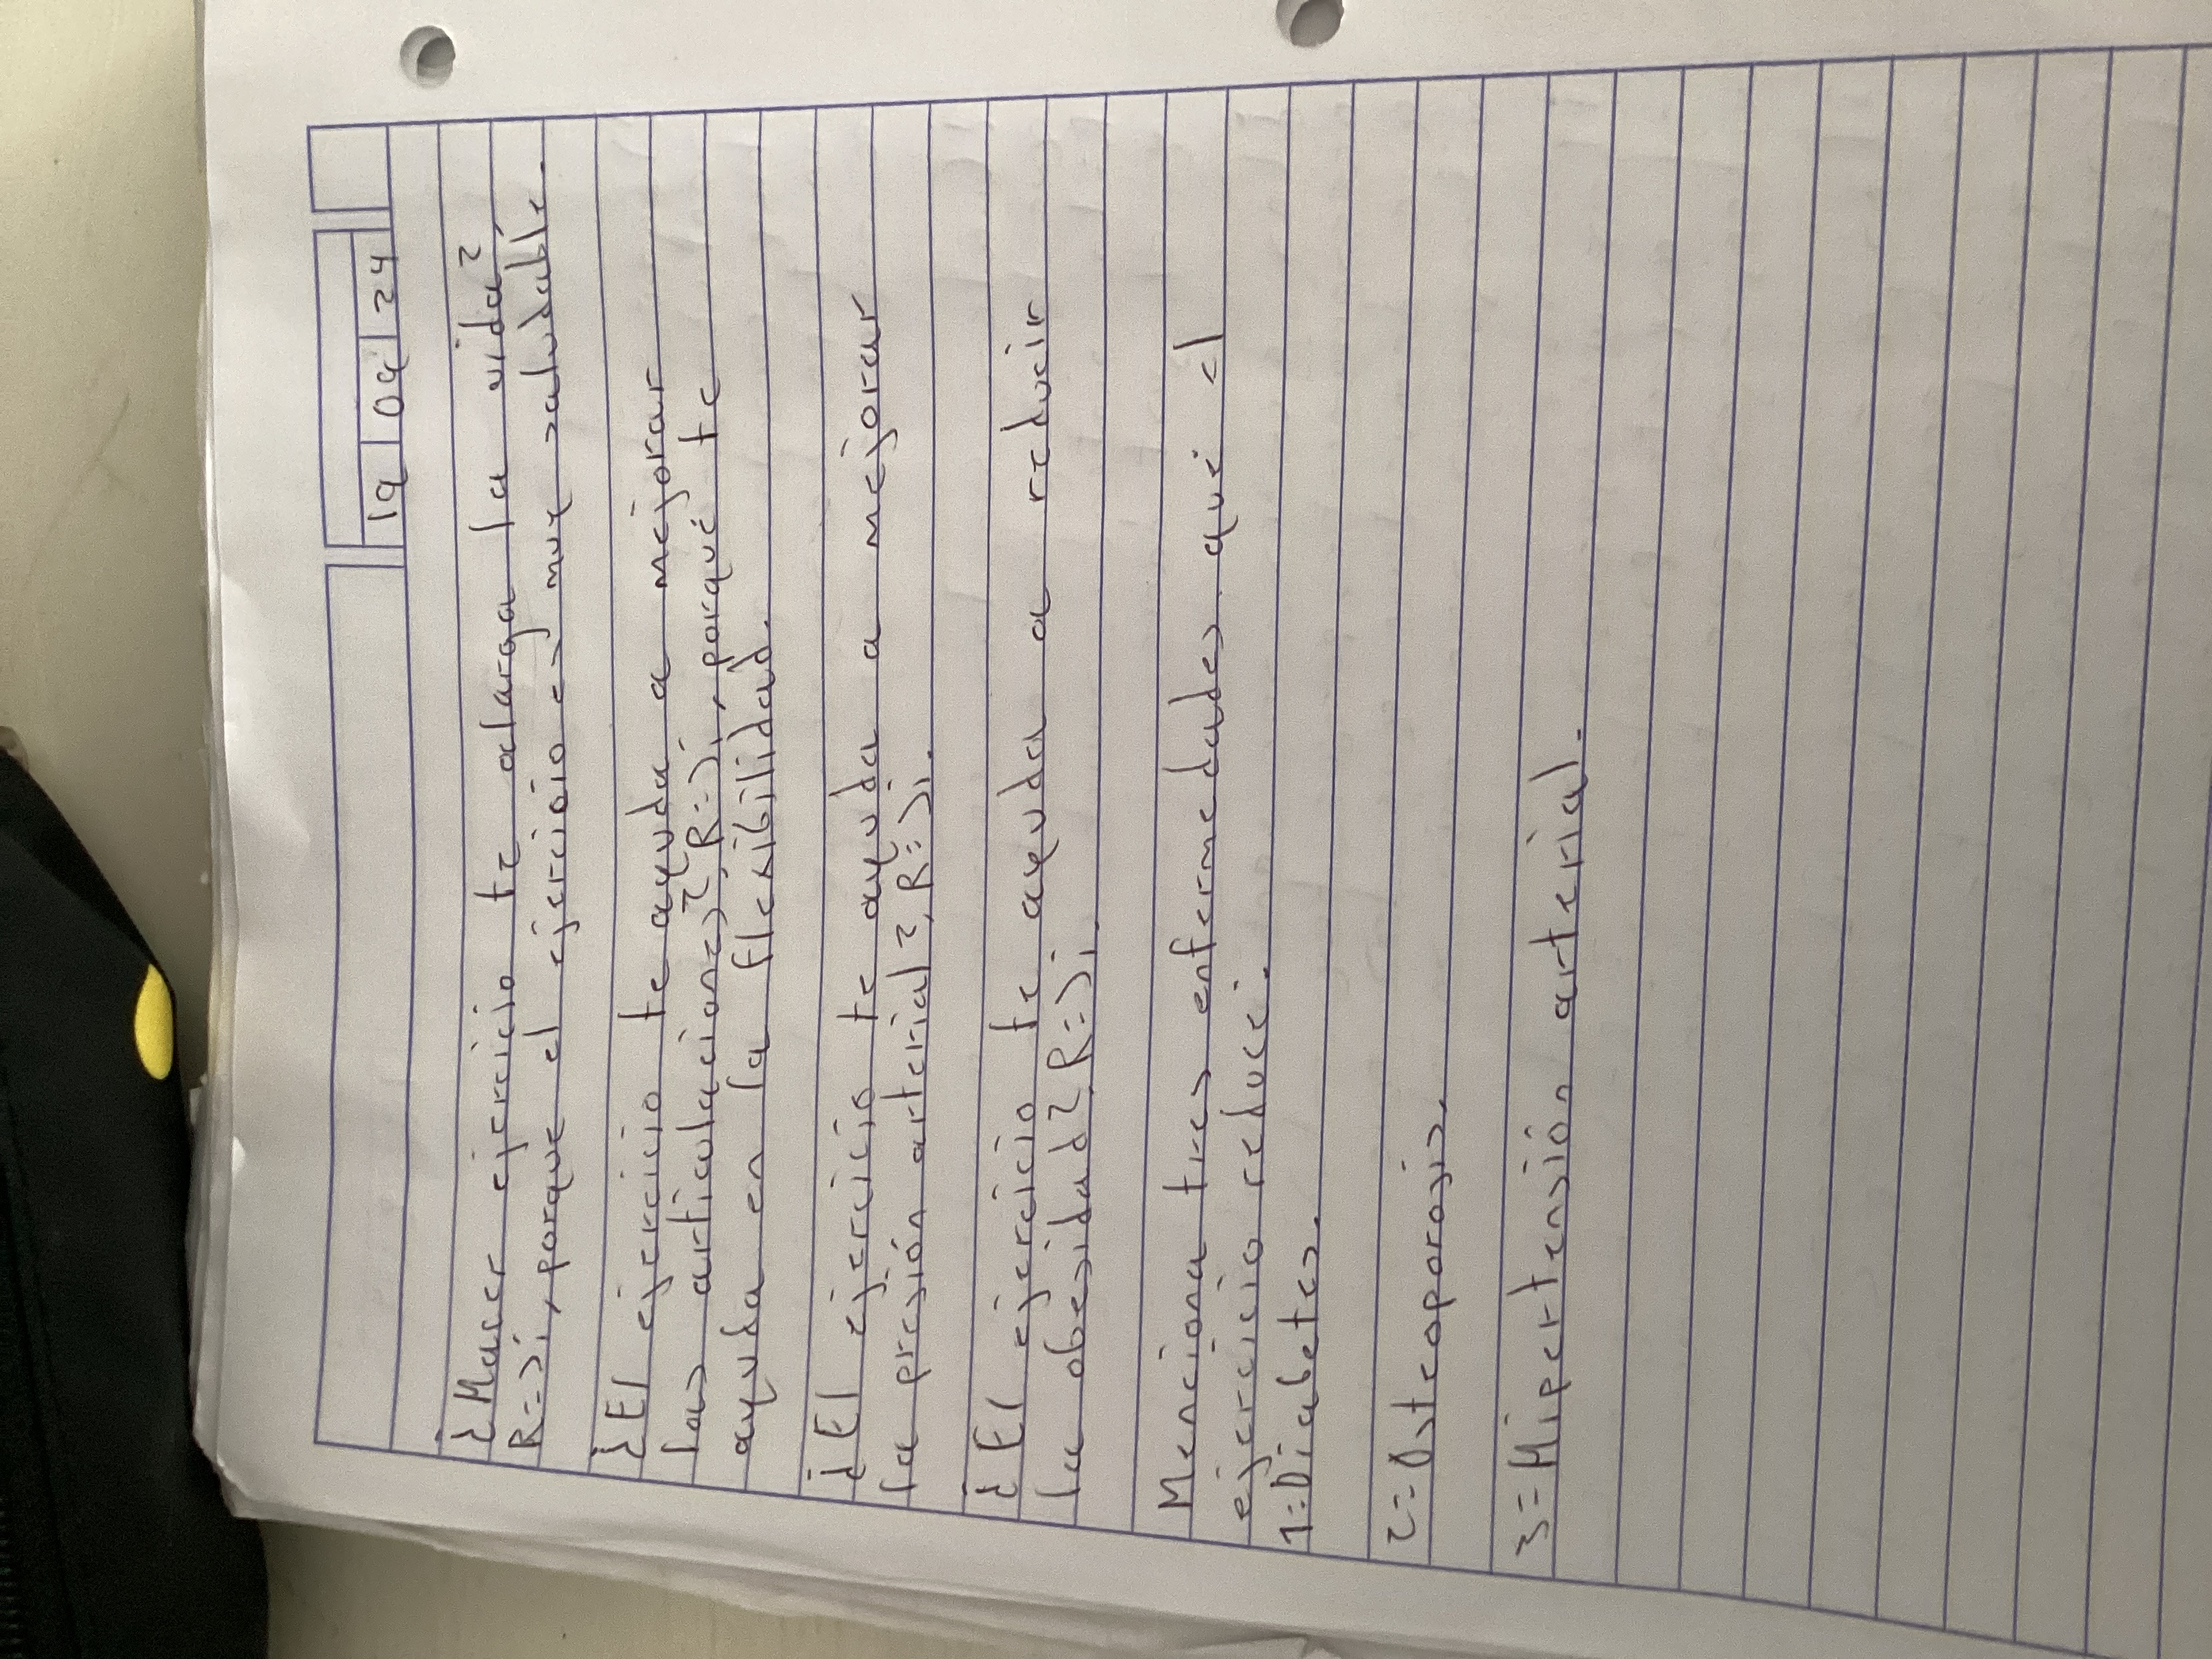 19 09 24
¿Hacer ejercicio te alarga la vida?
R=Si, porque el ejercicio es muy saludable.
¿El ejercicio te ayuda a mejorar
las articulaciones? R=Si, porqué te
ayuda en la flexibilidad.
¿El ejercicio te ayuda a mejorar
la presión arterial?, R=Si.
¿El ejercicio te ayuda a reducir
la obesidad?, R=Si.
Menciona tres enfermedades qué el
ejercicio reduce.
1=Diabetes.
2=Osteoporosis.
3=Hipertensión arterial.